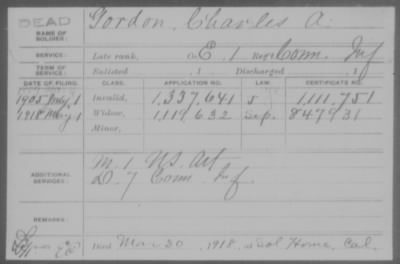 DEAD
NAME OF SOLDIER: Gordon, Charles A.
SERVICE: Late rank, Co. E, 1 Reg't Conn. Inf
TERM OF SERVICE: Enlisted , 1 Discharged , 1
DATE OF FILING. CLASS. APPLICATION NO. LAW. CERTIFICATE NO.
1905 May 1 Invalid, 1,337,641 5 1,111,751
1918 May 1 Widow, 1,119,632 Sep. 847931
Minor,
ADDITIONAL SERVICES: M. 1 US. Art
D. 7 Conn Inf.
REMARKS:
Died Mar 30, 1918, at Sol Home, Cal.